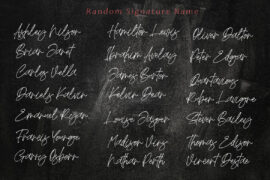 Random Signature Name
Ashley Nilson
Brian Janet
Carlos Vialla
Daniels Kalvin
Emanuel Rizan
Francis Younge
Garry Osborn
Hamilton Lewis
Ibrahim Analay
James Borter
Kalvin Dean
Louise Jasper
Madison Virs
Nathan Porth
Oliver Dalton
Peter Edgar
Quartavius
Ruben Lavogne
Steven Bailey
Thomas Edison
Vincent Dastae